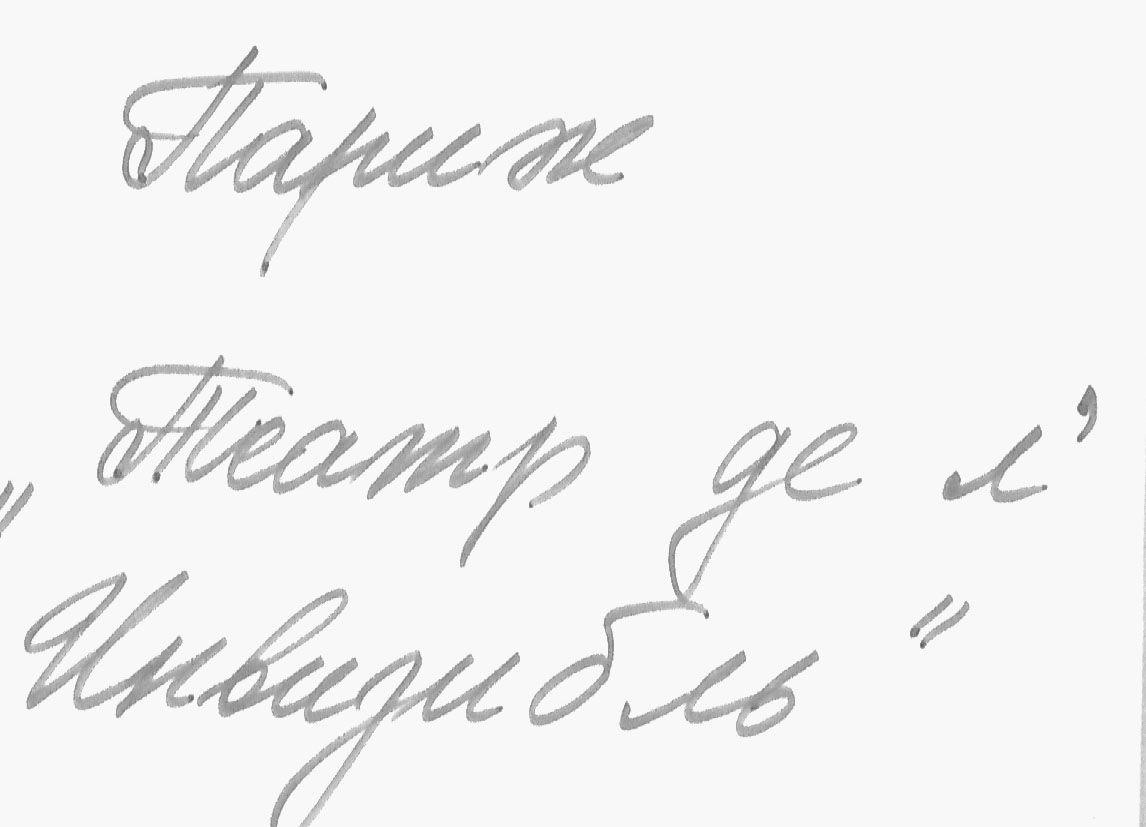 Париж
„Театр де л'
Инвизибль"